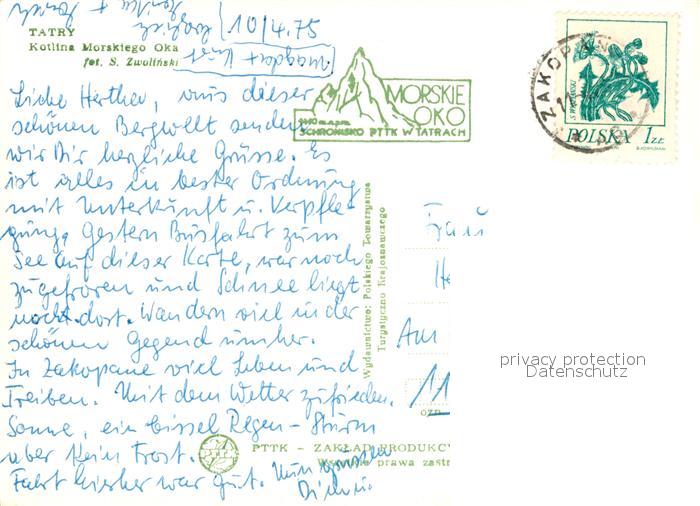 10/4.75
TATRY
Kotlina Morskiego Oka
fot. S. Zwoliński
MORSKIE
OKO
SCHRONISKO PTTK W TATRACH
ZAKOPANE
POLSKA 1 ZŁ
Liebe Herthel, aus dieser
schönen Bergwelt senden
wir Dir herzliche Grüsse. Es
ist alles in bester Ordnung
mit Unterkunft u. Verpfle-
gung. Gestern Busfahrt zum
See auf dieser Karte, war noch
zugefroren und Schnee liegt
noch dort. Wandern viel in der
schönen Gegend umher.
In Zakopane viel Leben und
Treiben. Mit dem Wetter zufrieden.
Sonne, ein bissel Regen - Sturm
aber kein Frost.
Fahrt hierher war gut. Nun grüssen
Dich
Wydawnictwo: Polskiego Towarzystwa
Turystyczno Krajoznawczego
Frau
Am
11
PTTK - ZAKŁAD PRODUKC
Wszelkie prawa zastr
privacy protection
Datenschutz